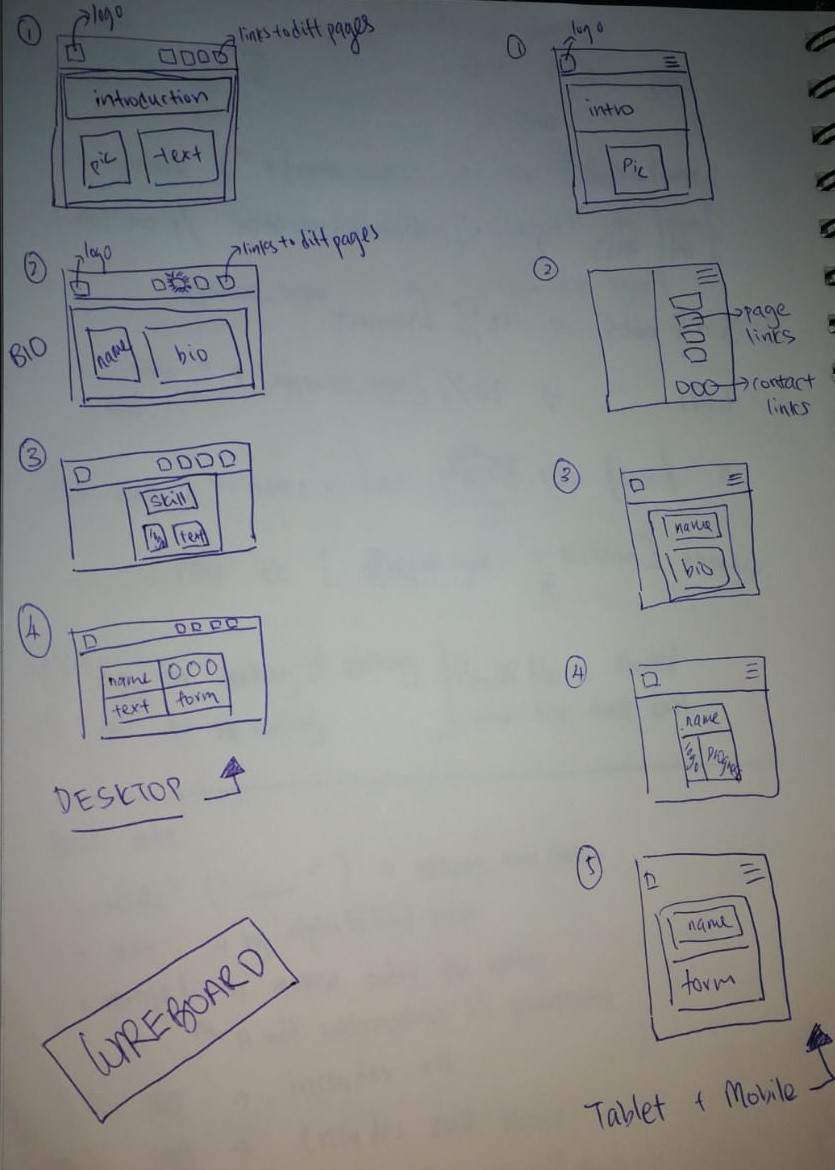 1
logo
links to diff pages
introduction
pic
text
2
logo
links to diff pages
BIO
name
bio
3
skill
text
4
name
OOO
text
form
DESKTOP
WIREBOARD
1
logo
intro
Pic
2
page
links
contact
links
3
name
bio
4
name
logo
progress
5
name
form
Tablet + Mobile